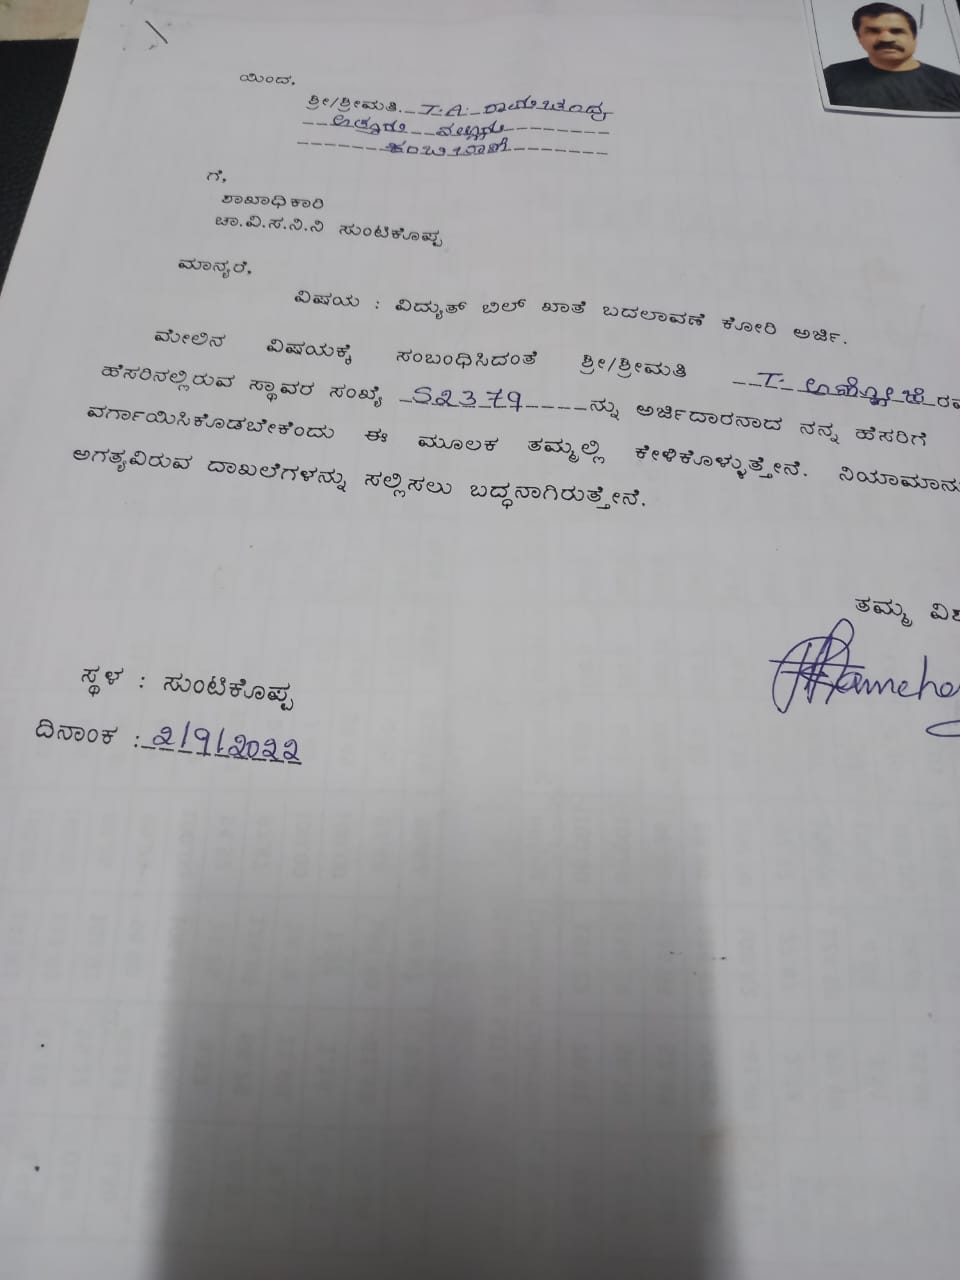 ಯಿಂದ,
ಶ್ರೀ/ಶ್ರೀಮತಿ. T.A. ರಾಮಚಂದ್ರ
ಗೆ,
ಶಾಖಾಧಿಕಾರಿ
ಚಾ.ವಿ.ಸ.ನಿ.ನಿ ಸುಂಟಿಕೊಪ್ಪ
ಮಾನ್ಯರೆ,
ವಿಷಯ : ವಿದ್ಯುತ್ ಬಿಲ್ ಖಾತೆ ಬದಲಾವಣೆ ಕೋರಿ ಅರ್ಜಿ.
ಮೇಲಿನ ವಿಷಯಕ್ಕೆ ಸಂಬಂಧಿಸಿದಂತೆ ಶ್ರೀ/ಶ್ರೀಮತಿ T.
ಹೆಸರಿನಲ್ಲಿರುವ ಸ್ಥಾವರ ಸಂಖ್ಯೆ S2379 ನ್ನು ಅರ್ಜಿದಾರನಾದ ನನ್ನ ಹೆಸರಿಗೆ
ವರ್ಗಾಯಿಸಿಕೊಡಬೇಕೆಂದು ಈ ಮೂಲಕ ತಮ್ಮಲ್ಲಿ ಕೇಳಿಕೊಳ್ಳುತ್ತೇನೆ. ನಿಯಾಮಾನು
ಅಗತ್ಯವಿರುವ ದಾಖಲೆಗಳನ್ನು ಸಲ್ಲಿಸಲು ಬದ್ಧನಾಗಿರುತ್ತೇನೆ.
ತಮ್ಮ ವಿಶ
ಸ್ಥಳ : ಸುಂಟಿಕೊಪ್ಪ
ದಿನಾಂಕ : 2/9/2022